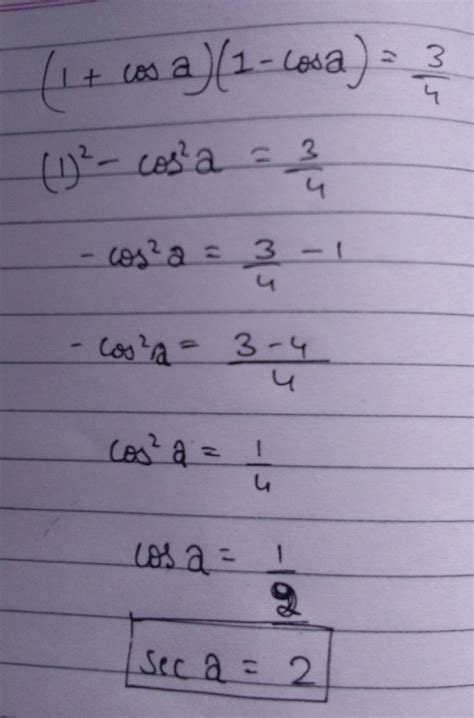 (1 + cos a)(1 - cos a) = 3/4
(1)² - cos² a = 3/4
- cos² a = 3/4 - 1
- cos² a = (3 - 4)/4
cos² a = 1/4
cos a = 1/2
sec a = 2